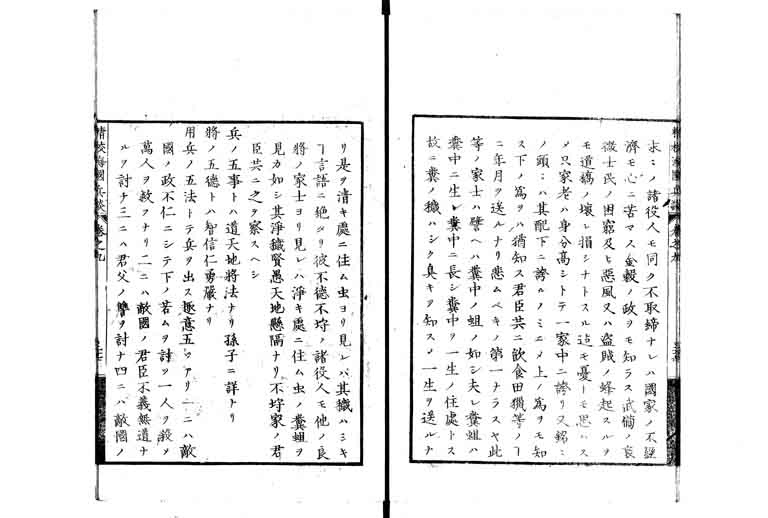 末〻ノ諸役人モ同ク不取締ナレハ國家ノ不經
濟モ心ニ苦マス金穀ノ政ヲモ知ラス武備ノ衰
微士民ノ困窮及ヒ惡風又ハ盗賊ノ蜂起スルヲ
モ道橋ノ壞レ損シナトスル迠モ憂トモ思ハス
メ只家老ハ身分高シトテ一家中ニ誇リ又
ノ頭〻ハ其配下ニ誇ルノミニメ上ノ爲ヲモ知
ス下ノ爲ヲハ猶知ス君臣共ニ飲食田獵等ノヿ
ニ年月ヲ送ルナリ悲ムベキノ第一ナラスヤ此
等ノ家士ハ譬ヘハ糞中ノ蛆ノ如シ夫レ糞蛆ハ
糞中ニ生レ糞中ニ長シ糞中ヲ一生ノ住處トス
故ニ糞ノ穢ハシク臭キヲ知スメ一生ヲ送ルナ
リ是ヲ清キ處ニ住ム虫ヨリ見レバ其穢ハシキ
ヿ言語ニ絶タリ彼不德不埒ノ諸役人モ他ノ良
將ノ家士ヨリ見レハ淨キ處ニ住ム虫ノ糞蛆ヲ
見カ如シ其淨穢賢愚天地懸隔ナリ不埒家ノ君
臣共ニ之ヲ察スヘシ
兵ノ五事トハ道天地將法ナリ孫子ニ詳ナリ
將ノ五德トハ智信仁勇嚴ナリ
用兵ノ五法トテ兵ヲ出ス趣意五ツアリ一ニハ敵
國ノ政不仁ニシテ下ノ苦ムヲ討ツ一人ヲ殺メ
萬人ヲ救フナリ二ニハ敵國ノ君臣不義無道ナ
ルヲ討ナ三ニハ君父ノ讐ヲ討ナ四ニハ敵國ノ
精校海國兵談 卷之九